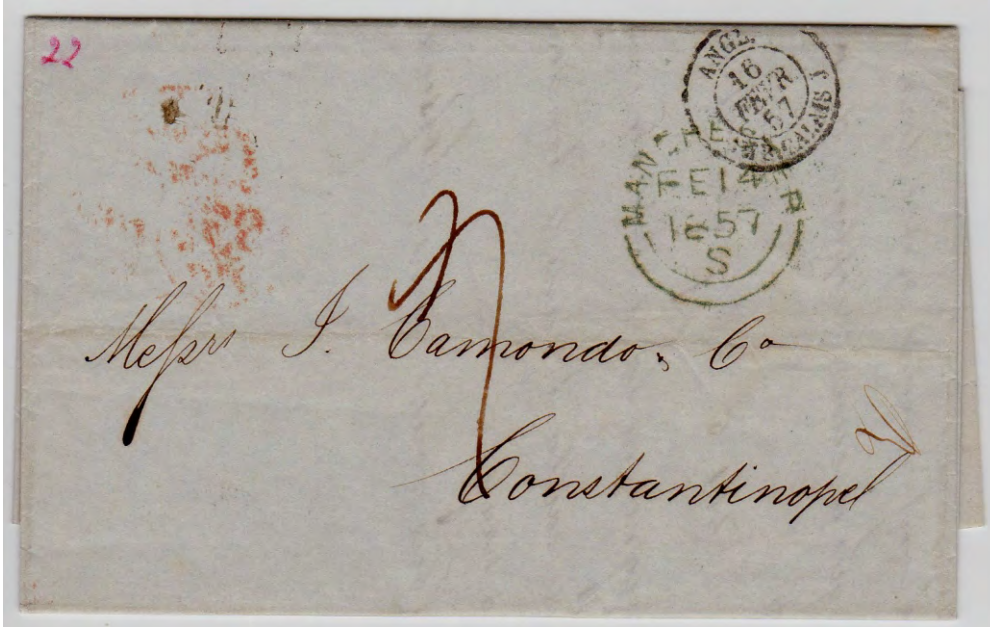 22
ANGL.
16
FEVR
57
CALAIS
MANCHESTER
FE 14
1857
S
Messrs I. Camondo, Co
Constantinopel